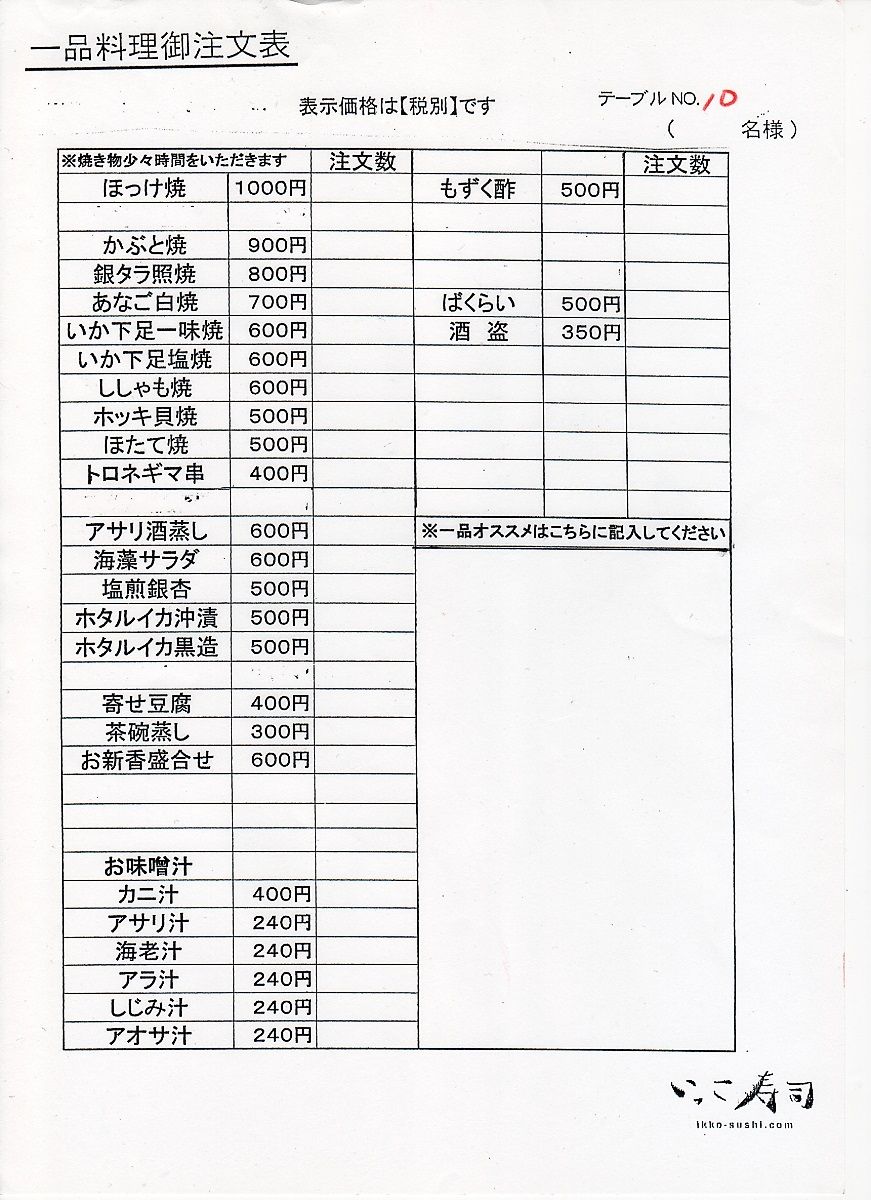 一品料理御注文表
表示価格は【税別】です
テーブルNO.10
( 名様)
※焼き物少々時間をいただきます 注文数 注文数
ほっけ焼 1000円 もずく酢 500円
かぶと焼 900円
銀タラ照焼 800円
あなご白焼 700円 ばくらい 500円
いか下足一味焼 600円 酒 盗 350円
いか下足塩焼 600円
ししゃも焼 600円
ホッキ貝焼 500円
ほたて焼 500円
トロネギマ串 400円
アサリ酒蒸し 600円 ※一品オススメはこちらに記入してください
海藻サラダ 600円
塩煎銀杏 500円
ホタルイカ沖漬 500円
ホタルイカ黒造 500円
寄せ豆腐 400円
茶碗蒸し 300円
お新香盛合せ 600円
お味噌汁
カニ汁 400円
アサリ汁 240円
海老汁 240円
アラ汁 240円
しじみ汁 240円
アオサ汁 240円
いっこ寿司
ikko-sushi.com